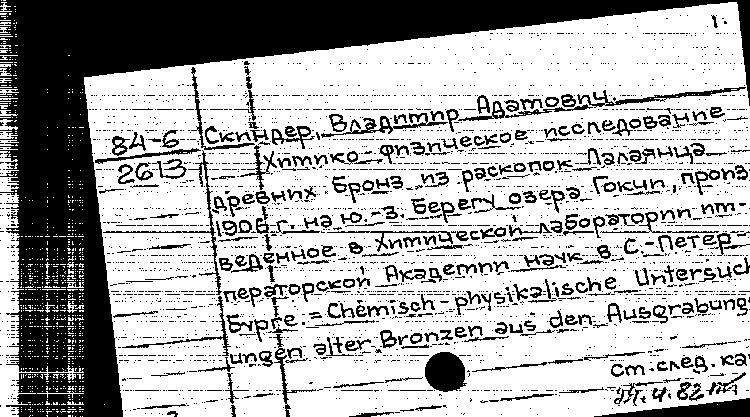 1.
84-6
2613
Скиндер, Владимир Адамович.
Химико-физическое исследование
древних бронз из раскопок Палаянца
1906 г. на ю.-з. берегу озера Гокчи, произ
веденное в Химической лаборатории им-
ператорской Академии наук в С.-Петер-
бурге. = Chemisch-physikalische Untersuch
ungen alter Bronzen aus den Ausgrabung
см. след. ка